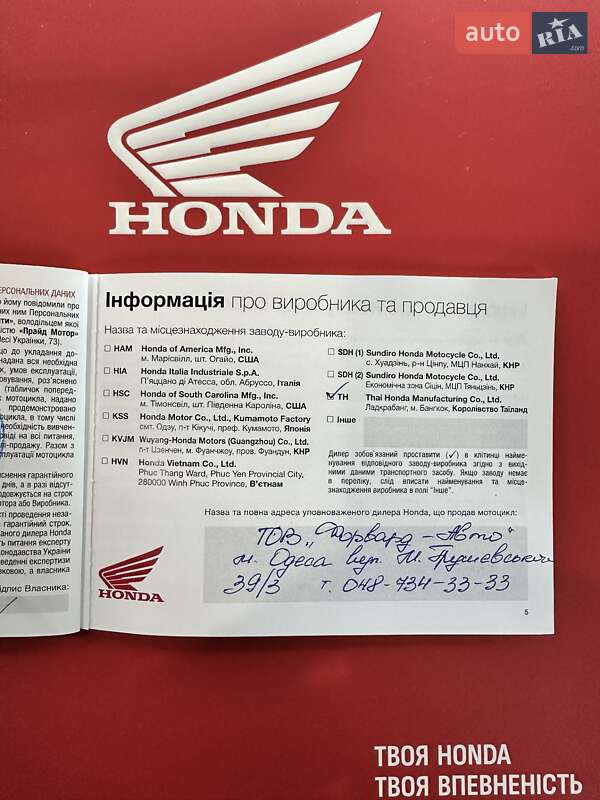 auto RIA .com
HONDA
ЕРСОНАЛЬНИХ ДАНИХ
о йому повідомили про
них ним Персональних
нти», володільцем якої
істю «Прайд Мотор»
Лесі Українки, 73).
що до укладання до-
надана вся необхідна
, умов експлуатації,
овування, роз'яснено
(табличок поперед-
мотоцикла, надано
продемонстровано
тоцикла, в тому числі
необхідність вивчен-
овіді на всі питання,
лі-продажу. Разом з
плуатації мотоцикла
снення гарантійного
днів, а в разі відсут-
одовжується на строк
тора або Виробника.
сті проведення неза-
гарантійний строк.
аного дилера Honda
ь питання експерту
онодавства України
оведенні експертизи
ковою, а власника
ідпис Власника:
Інформація про виробника та продавця
Назва та місцезнаходження заводу-виробника:
HAM Honda of America Mfg., Inc.
м. Марісвілл, шт. Огайо, США
HIA Honda Italia Industriale S.p.A.
П'яццано ді Атесса, обл. Абруссо, Італія
HSC Honda of South Carolina Mfg., Inc.
м. Тімонсвіл, шт. Південна Кароліна, США
KSS Honda Motor Co., Ltd., Kumamoto Factory
смт. Одзу, п-т Кікучі, преф. Кумамото, Японія
KVJM Wuyang-Honda Motors (Guangzhou) Co., Ltd.
п-т Цзенчен, м. Фуанчжоу, пров. Фуандун, КНР
HVN Honda Vietnam Co., Ltd.
Phuc Thang Ward, Phuc Yen Provincial City,
280000 Winh Phuc Province, В'єтнам
SDH (1) Sundiro Honda Motocycle Co., Ltd.
с. Хуадзінь, р-н Цінпу, МЦП Нанхай, КНР
SDH (2) Sundiro Honda Motocycle Co., Ltd.
Економічна зона Сіцін, МЦП Тяньцзінь, КНР
TH Thai Honda Manufacturing Co., Ltd.
Ладкрабанг, м. Бангкок, Королівство Таїланд
Інше
Дилер зобов'язаний проставити (✓) в клітинці найме-
нування відповідного заводу-виробника згідно з вихід-
ними даними транспортного засобу. Якщо заводу немає
в переліку, слід вписати найменування та місце-
знаходження виробника в полі "Інше".
Назва та повна адреса уповноваженого дилера Honda, що продав мотоцикл:
ТОВ „Форвард-Авто"
м. Одеса вул. М. Грушевського
39/3 т. 048-734-33-33
HONDA
5
ТВОЯ HONDA
ТВОЯ ВПЕВНЕНІСТЬ